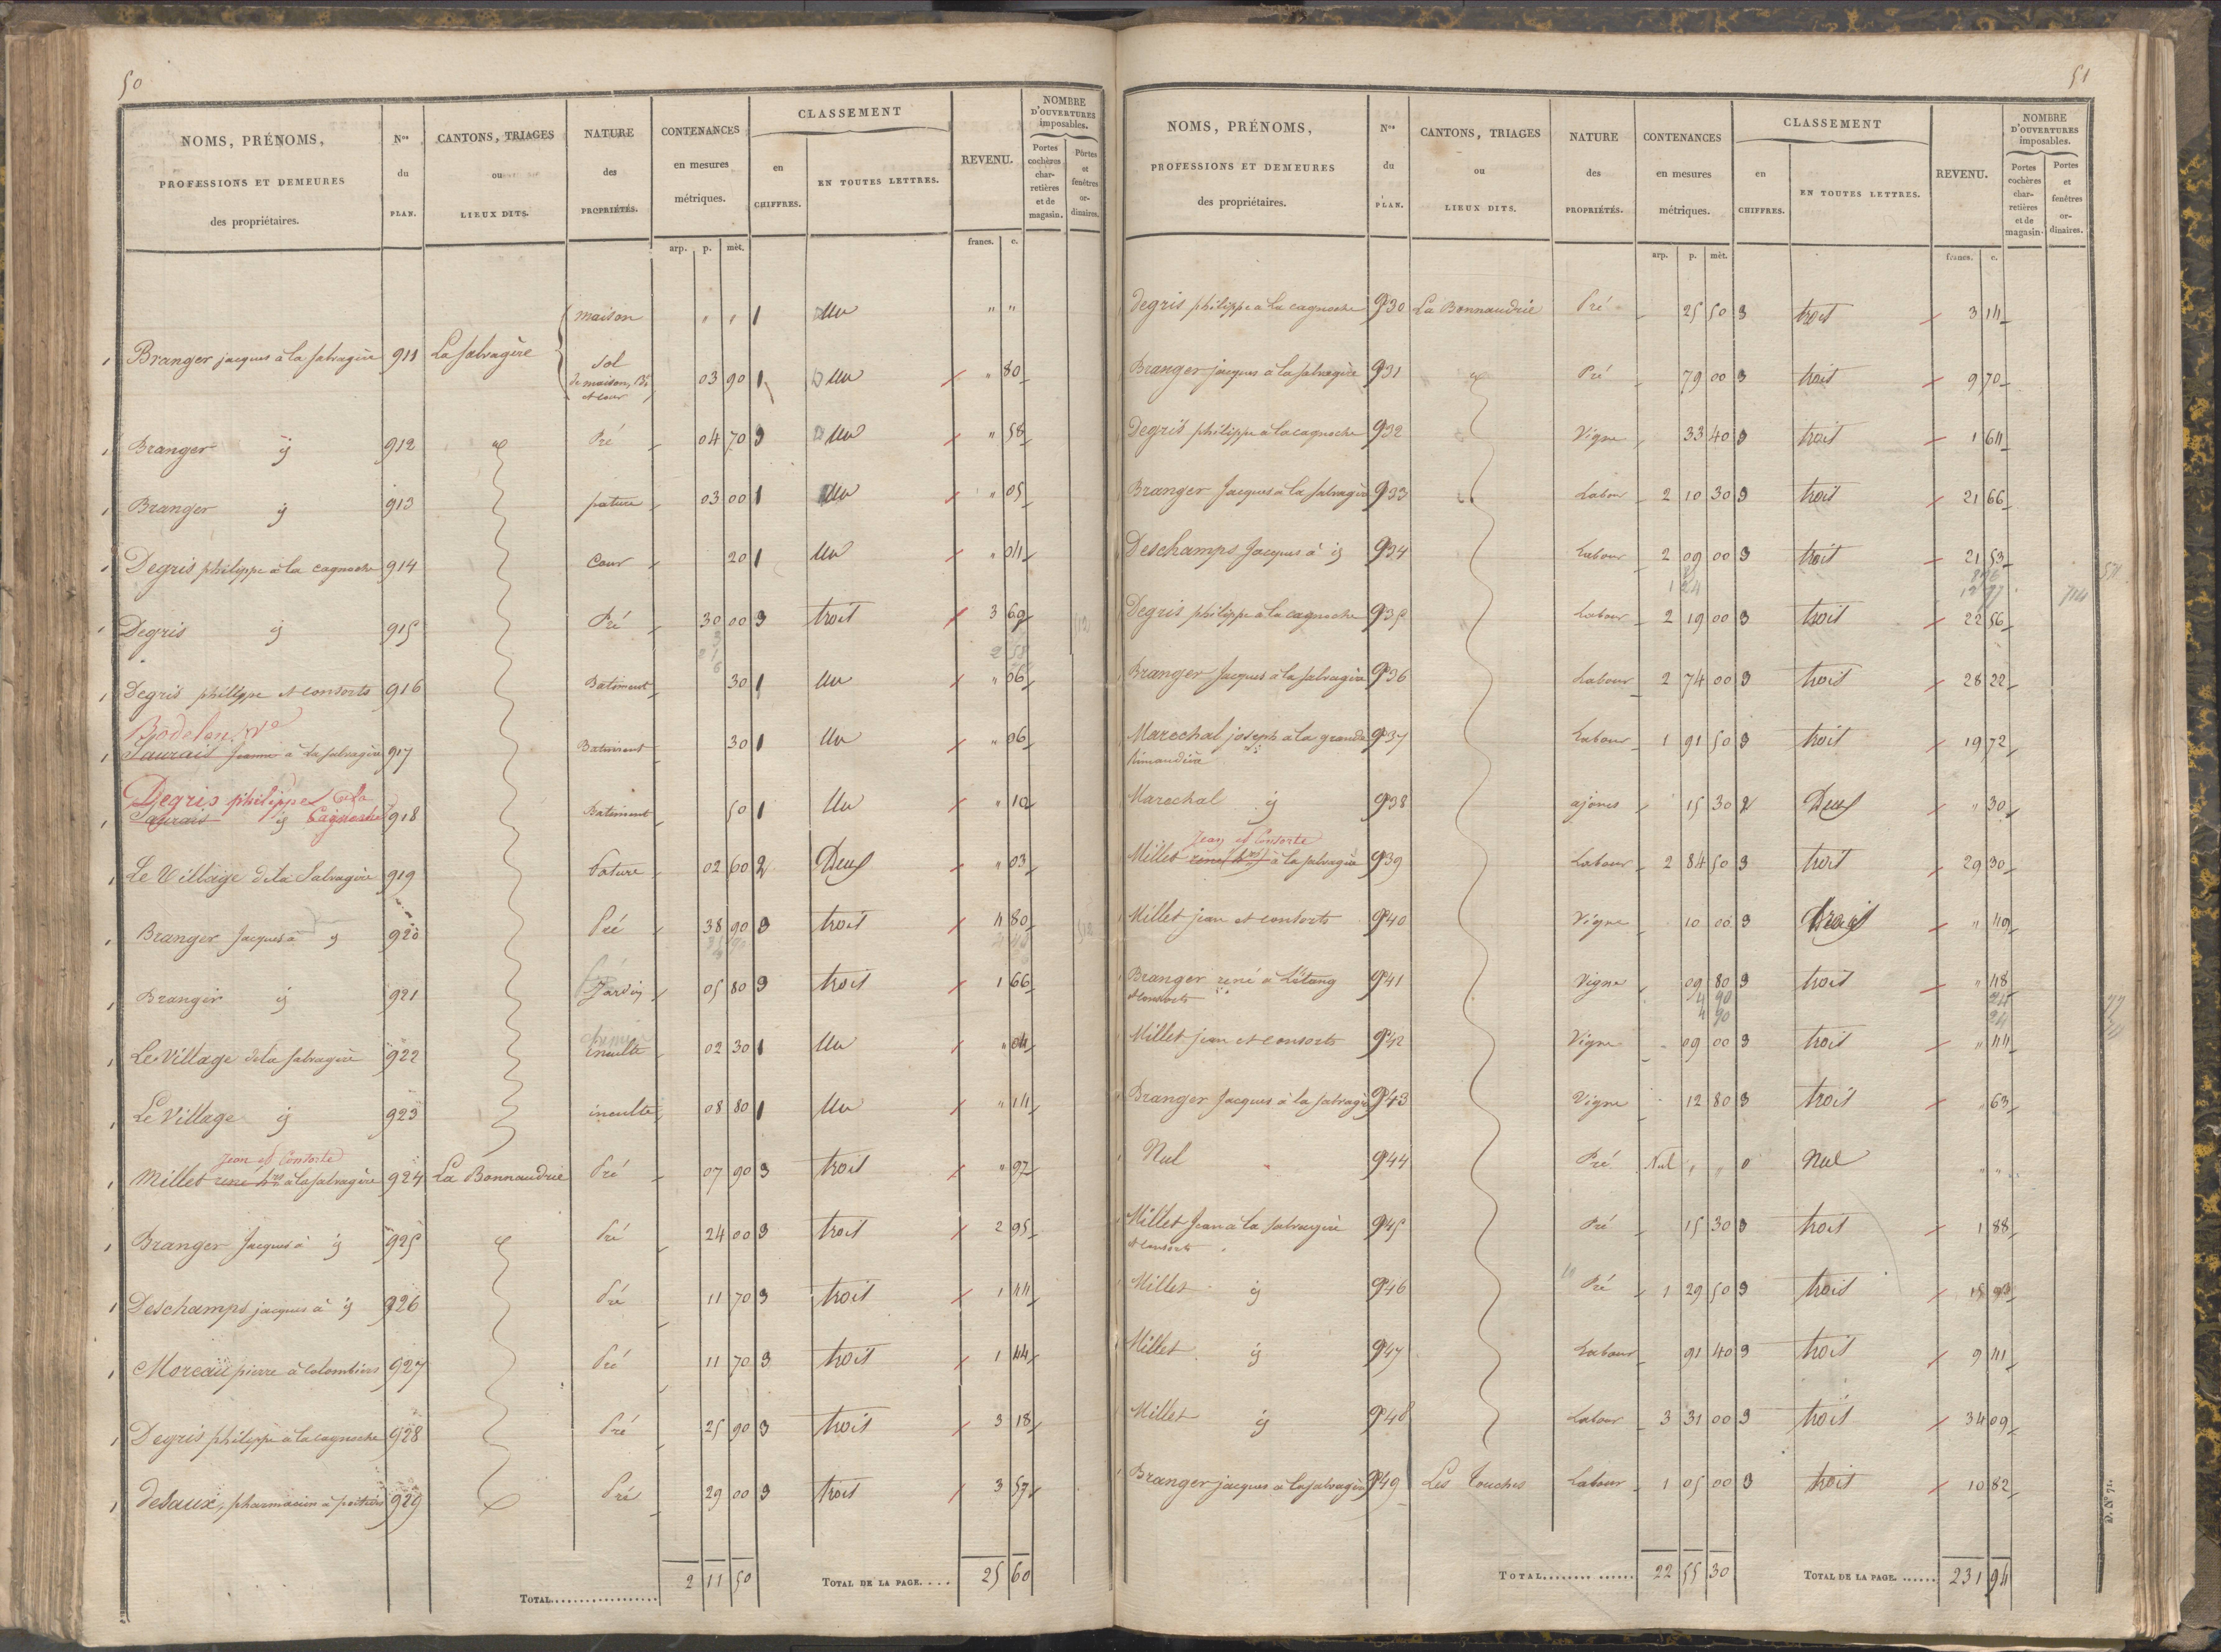 50
NOMS, PRÉNOMS, PROFESSIONS ET DEMEURES des propriétaires. Nos du PLAN. CANTONS, TRIAGES ou LIEUX DITS. NATURE des PROPRIÉTÉS. CONTENANCES en mesures métriques. CLASSEMENT en CHIFFRES. EN TOUTES LETTRES. REVENU. NOMBRE D'OUVERTURES imposables. Portes cochères charretières et de magasin. Portes et fenêtres ordinaires.
arp. p. mèt. francs. c.
maison " " 1 Un " "
Branger jacques à la salvagère 911 La salvagère Sol de maison, Bt et cour 03 90 1 Un " 80
Branger ij 912 Pré 04 70 3 Un " 58
Branger ij 913 pature 03 00 1 Un " 05
Degris philippe à la cagnoche 914 Cour 20 1 Un " 04
Degris ij 915 Pré 30 00 3 trois 3 69
Degris philippe et consorts 916 Batiment 30 1 Un " 06
Bodelon Ve
Saurais Jeanne à la salvagère 917 Batiment 30 1 Un " 06
Degris philippe à la Cagnoche
Saurais ij 918 Batiment 50 1 Un " 10
Le Village de la Salvagère 919 Pature 02 60 2 Deux " 03
Branger Jacques à ij 920 Pré 38 90 3 trois 4 80
Branger ij 921 Jardin 05 80 3 trois 1 66
chemin
Le Village de la salvagère 922 inculte 02 30 1 Un " 04
Le Village ij 923 inculte 08 80 1 Un " 14
Jean et Consorts
Millet rené hrs à la salvagère 924 La Bonnaudrie Pré 07 90 3 trois " 97
Branger Jacques à ij 925 Pré 24 00 3 trois 2 95
Deschamps jacques à ij 926 Pré 11 70 3 trois 1 44
Moreau pierre à colombiers 927 Pré 11 70 3 trois 1 44
Degris philippe à la cagnoche 928 Pré 25 90 3 trois 3 18
desaux, pharmacien à poitiers 929 Pré 29 00 3 trois 3 57
TOTAL 2 11 50 TOTAL DE LA PAGE 25 60
51
NOMS, PRÉNOMS, PROFESSIONS ET DEMEURES des propriétaires. Nos du PLAN. CANTONS, TRIAGES ou LIEUX DITS. NATURE des PROPRIÉTÉS. CONTENANCES en mesures métriques. CLASSEMENT en CHIFFRES. EN TOUTES LETTRES. REVENU. NOMBRE D'OUVERTURES imposables. Portes cochères charretières et de magasin. Portes et fenêtres ordinaires.
arp. p. mèt. francs. c.
degris philippe à la cagnoche 930 La Bonnaudrie Pré 25 50 3 trois 3 14
Branger jacques à la salvagère 931 Pré 79 00 3 trois 9 70
Degris philippe à la cagnoche 932 Vigne 33 40 3 trois 1 64
Branger Jacques à la salvagère 933 Labour 2 10 30 3 trois 21 66
Deschamps Jacques à ij 934 Labour 2 09 00 3 trois 21 53
Degris philippe à la cagnoche 935 Labour 2 19 00 3 trois 22 56
Branger Jacques à la salvagère 936 Labour 2 74 00 3 trois 28 22
Marechal joseph à la grande 937 Labour 1 91 50 3 trois 19 72
Marechal ij 938 ajoncs 15 30 2 Deux " 30
Jean et Consorts
Millet rené hrs à la salvagère 939 Labour 2 84 50 3 trois 29 30
Millet jean et consorts 940 Vigne 10 00 3 trois " 49
Branger rené à L'étang 941 Vigne 09 80 3 trois " 48
et consorts
Millet jean et consorts 942 Vigne 09 00 3 trois " 44
Branger Jacques à la salvagère 943 Vigne 12 80 3 trois " 63
Nul 944 Pré Nul " " 0 Nul " "
Millet Jean à la salvagère 945 Pré 15 30 3 trois 1 88
et consorts
Millet ij 946 Pré 1 29 50 3 trois 15 93
Millet ij 947 Labour 91 40 3 trois 9 41
Millet ij 948 Labour 3 31 00 3 trois 34 09
Branger jacques à la salvagère 949 Les Touches Labour 1 05 00 3 trois 10 82
TOTAL 22 55 30 TOTAL DE LA PAGE 231 94
D. N° 71.